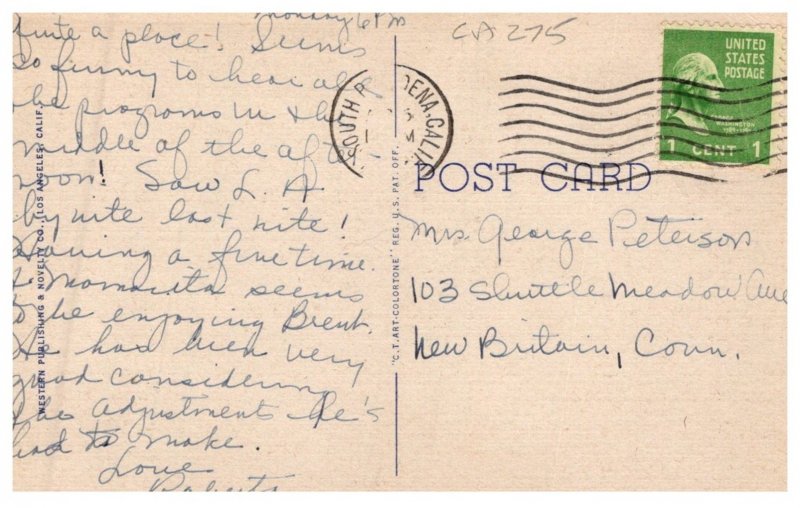 Monday 6 PM
Quite a place! Seems
so funny to hear all
the programs in the
middle of the after-
noon! Saw L. A.
by nite last nite!
Having a fine time.
Mamacita seems
to be enjoying Brent.
He has been very
good considering
the adjustments he's
had to make.
Love
Roberta
WESTERN PUBLISHING & NOVELTY CO., LOS ANGELES, CALIF.
"C.T. ART-COLORTONE" REG. U.S. PAT. OFF.
CA 275
SOUTH PASADENA, CALIF.
UNITED
STATES
POSTAGE
GEORGE
WASHINGTON
1 CENT 1
POST CARD
Mrs. George Peterson
103 Shuttle Meadow Ave
New Britain, Conn.